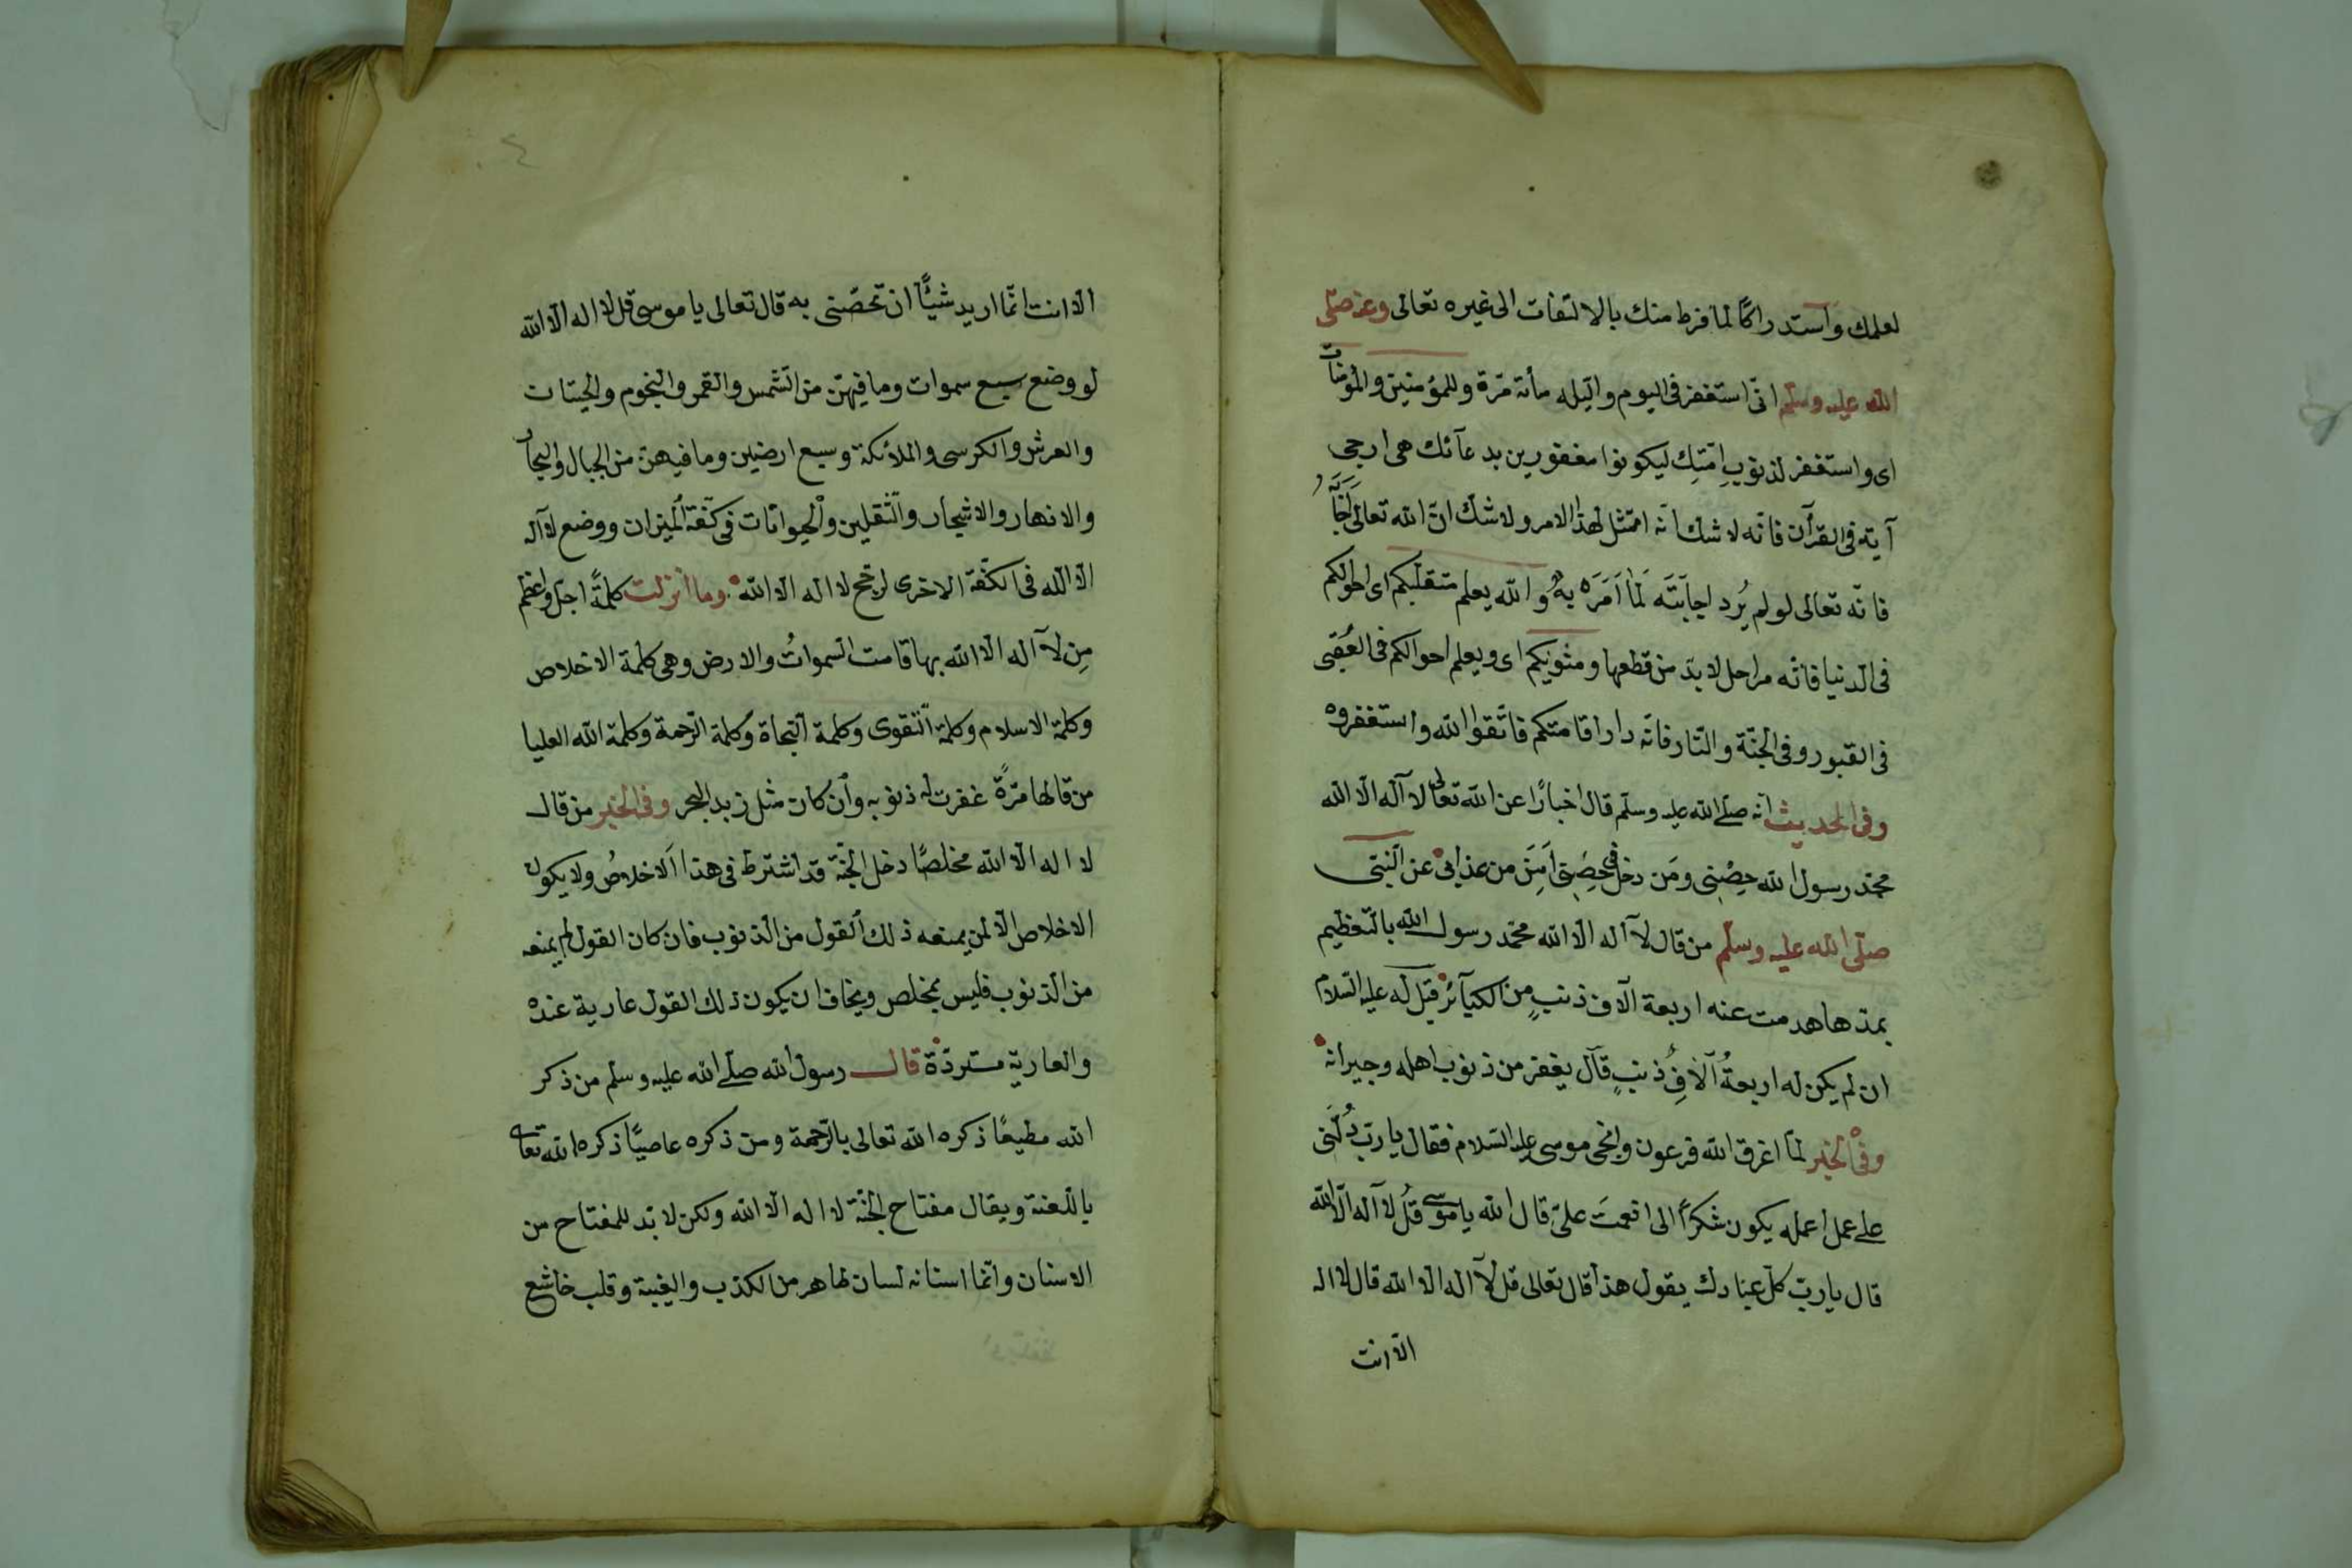 لعلمك وَاستدراكًا لما فرط منك بالالتفات الى غيره تعالى وعنه صلّى
الله عليه وسلّم انّى استغفر فى اليوم والّيله مأئة مرّة وللمؤمنين والمؤمنات
اى واستغفر لذنوبِ امّتِك ليكونوا مغفورين بدعآئك هى ارجى
آية فى القرآن فانّه لا شك انّه امتثل لهذا الامر ولا شك انّ الله تعالى اَجَابَهُ
فانّه تعالى لو لم يُرد اجابَتَه لَمَا اَمَرَه بِهِ والله يعلم متقلّبكم اى احوالكم
فى الدنيا فانّه مراحل لا بدّ من قطعها ومثويكم اى ويعلم احوالكم فى العُقبى
فى القبور وفى الجنّة والنّار فانّه دار اقامتكم فاتّقوا الله واستغفروه
وفى الحديث انّه صلّى الله عليه وسلّم قال اخبارًا عن الله تعالى لآ اله الّا الله
محمّد رسول الله حِصْنِى ومَن دخل فى حِصْنِى اَمِنَ من عذابى عن النّبىّ
صلّى الله عليه وسلّم من قال لآ اله الّا الله محمّد رسول الله بالتّعظيم
بمدّها هدمت عنه اربعة الآف ذنبٍ من الكبآئر قيل له عليه السّلام
ان لم يكن له اربعةُ آلافِ ذنبٍ قال يغفر من ذنوب اهله وجيرانه
وفى الخبر لمّا اغرق الله فرعون وانجى موسى عليه السّلام فقال يا ربّ دُلّنى
على عمل اعمله يكون شكرًا الى انعمتَ علىّ قال الله يا موسى قُل لآ اله الّا الله
قال يا ربّ كلّ عبادك يقول هذا قال تعالى قل لآ اله الّا الله قال لا اله
الّا انت
الّا انت انّما اريد شيئًا ان تخصّنى به قال تعالى يا موسى قل لا اله الّا الله
لو وضع سبع سموات وما فيهنّ من الشّمس والقمر والنجوم والجنّات
والعرش والكرسى والملائكة وسبع ارضين وما فيهنّ من الجبال والبحار
والانهار والاشجار والثّقلين والحيوانات فى كفّة الميزان ووضع لآ اله
الّا الله فى الكفّة الاخرى لرجّح لا اله الّا الله وما انزلت كلمةً اجلّ واعظم
مِن لآ اله الّا الله بها قامت السّموات والارض وهى كلمة الاخلاص
وكلمة الاسلام وكلمة التّقوى وكلمة النّجاة وكلمة الرّحمة وكلمة الله العليا
من قالها مرّةً غفرت له ذنوبه وان كان مثل زبد البحر وفى الخبر من قال
لا اله الّا الله مخلصًا دخل الجنّة قد اشترط فى هذا الاخلاصُ ولا يكون
الاخلاص الّا لمن يمنعه ذلك القول من الذّنوب فان كان القول لم يمنعه
من الذّنوب فليس بمخلص ويخاف ان يكون ذلك القول عارية عنده
والعاريّة مستردّة قال رسول الله صلّى الله عليه وسلم من ذكر
الله مطيعًا ذكره الله تعالى بالرّحمة ومن ذكره عاصيًا ذكره الله تعالى
باللّعنة ويقال مفتاح الجنّة لا اله الّا الله ولكن لا بدّ للمفتاح من
الاسنان وانّما اسنانه لسان طاهر من الكذب والغيبة وقلب خاشع